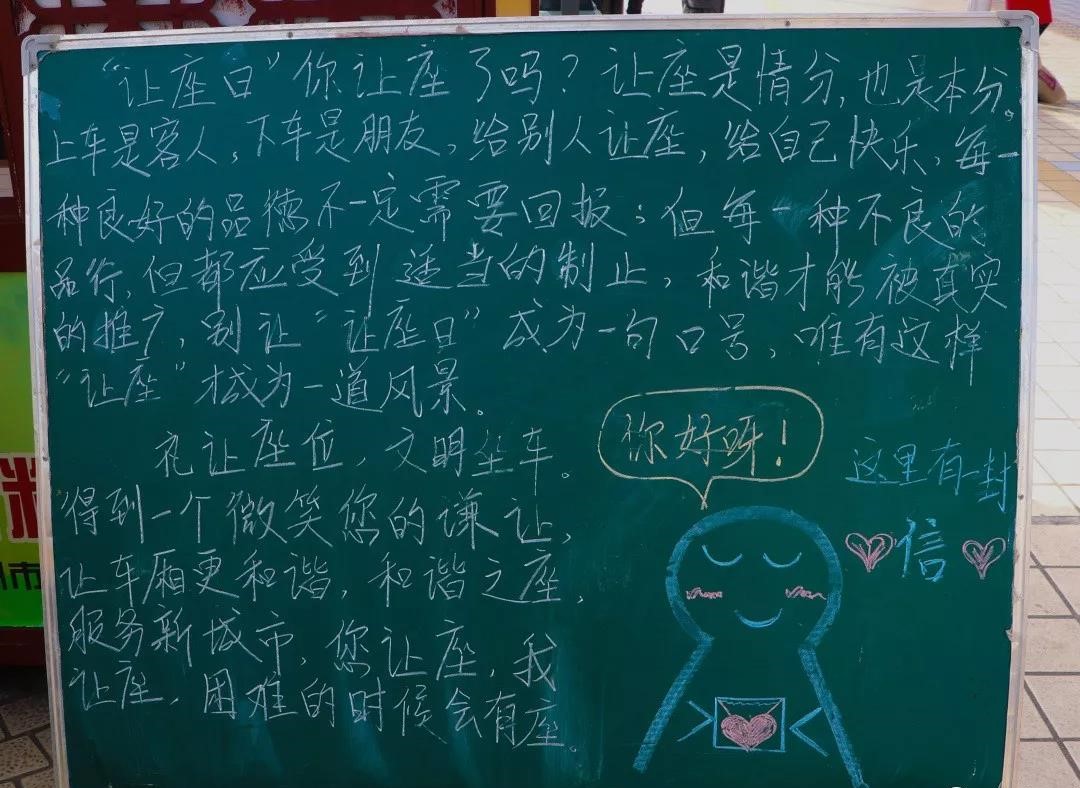 “让座日”你让座了吗？让座是情分，也是本分。
上车是客人，下车是朋友，给别人让座，给自己快乐，每一
种良好的品德不一定需要回报；但每一种不良的
品行，但都应受到适当的制止，和谐才能被真实
的推广，别让“让座日”成为一句口号，唯有这样
“让座”才成为一道风景。
礼让座位，文明坐车。
得到一个微笑您的谦让，
让车厢更和谐，和谐之座，
服务新城市，您让座，我
让座，困难的时候会有座。
你好呀！
这里有一封
信